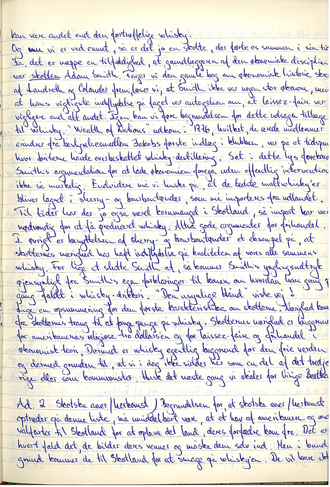 kan være andet end den fortræffelige whisky.
Og nu vi er ved emnet, så er det jo en skotte, der førte os sammen i sin tid.
Ja, det er næppe en tilfældighed, at grundlæggeren af den økonomiske disciplin
var skotten Adam Smith. Tager vi den gamle bog om økonomisk historie skrevet
af Landreth og Colander frem, lærer vi, at Smith ikke var nogen stor økonom, men
at hans vigtigste indflydelse på faget var antagelsen om, at laissez-faire var
vigtigere end alt andet. Igen kan vi føre begrundelsen for dette udsagn tilbage
til whisky. "Wealth of Nations" udkom i 1776, hvilket, de ærede medlemmer
erindrer fra bestyrelsesmedlem Jakobs første indlæg i klubben, var på et tidspunkt
hvor briterne havde overbeskattet whisky destillering. Set i dette lys forekommer
Smiths argumentation for at lade økonomien foregå uden offentlig intervention
ikke så mærkelig. Endvidere må vi huske på, at de bedste maltwhisky'er
bliver lagret i sherry- og bourbontønder, som må importeres fra udlandet.
Til tider har der jo også været kornmangel i Skotland, så import har været
nødvendig for at få produceret whisky. Altså gode argumenter for frihandel.
I øvrigt er benyttelsen af sherry- og bourbontønder et eksempel på, at
skotternes nærighed har haft indflydelse på kvaliteten af vores alle sammens
whisky. For lige at slutte Smith af, så kommer Smiths
til kende om hvordan han gang på
gang faldt i whisky-dikken. "Den usynlige Hånd" viste vej i
en opsummering for den første karakteristika om skotterne. Nærighed kommer
fra skotternes trang til at få penge på whisky. Skotternes nærighed er baggrund
for amerikanernes religiøse tro dollarsen og for laissez-faire og frihandel i
økonomisk teori. Dermed er whisky egentlig baggrund for den frie verden
og dermed grunden til, at vi i dag ikke sidder her som en del af det tredje
rige eller som kommunister. Husk det næste gang vi skåler for
Ad. 2 Skotske aner/herkomst / Begrundelsen for at skotske aner/herkomst
optræder på denne liste, må umiddelbart være, at et hav af amerikanere og andre
valfarter til Skotland for at opleve det land, deres forfædre kom fra. Det er
hvert fald det, de bilder deres venner og måske dem selv ind. Men i bund og
grund kommer de til Skotland for at smage på whiskyen. Der vil bare